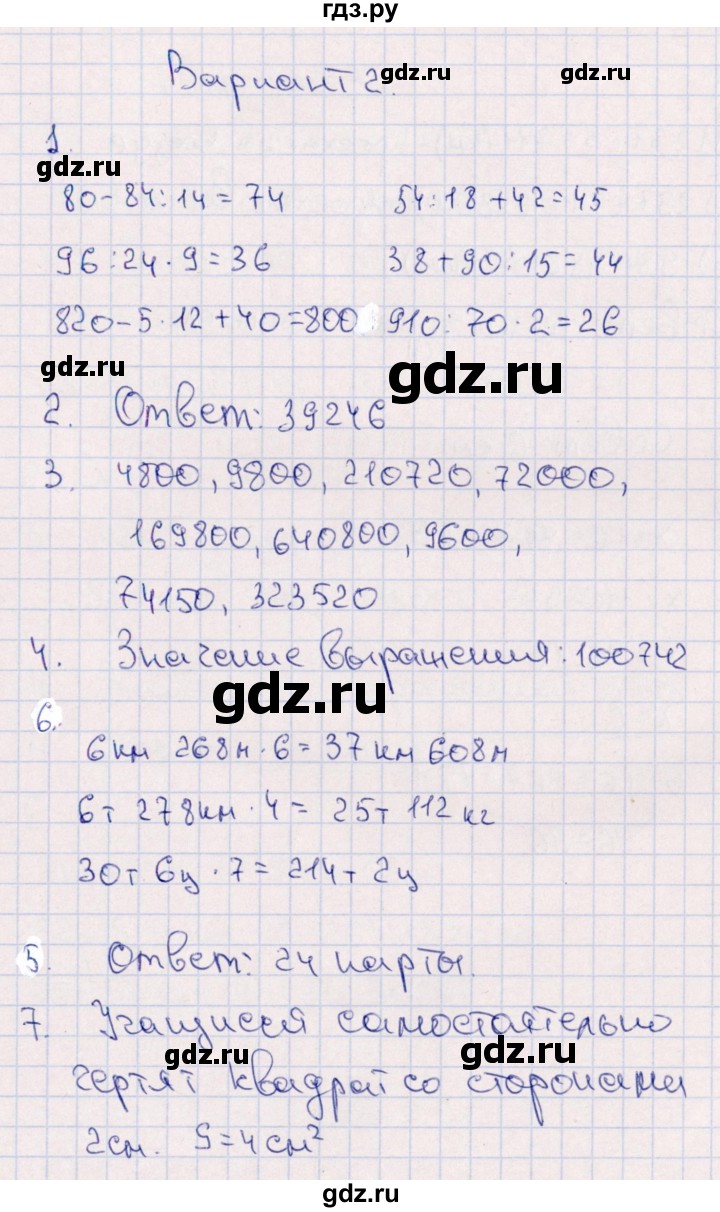 гдз.ру
Вариант 2.
gdz.ru gdz.ru
1.
gdz.ru
80-84:14=74 54:18+42=45
96:24·9=36 38+90:15=44
820-5·12+40=800 910:70·2=26
gdz.ru gdz.ru
2. Ответ: 39246
3. 4800, 9800, 210720, 72000,
169800, 640800, 9600,
74150, 323520
4. Значение выражения: 100742
gdz.ru
6.
6км 268м·6=37км 608м
6т 278км·4= 25т 112кг
30т 6ц·7=214т 2ц
5. Ответ: 24 парты.
7. Учащиеся самостоятельно
gdz.ru gdz.ru
чертят квадрат со сторонами
2см. S=4см²
gdz.ru